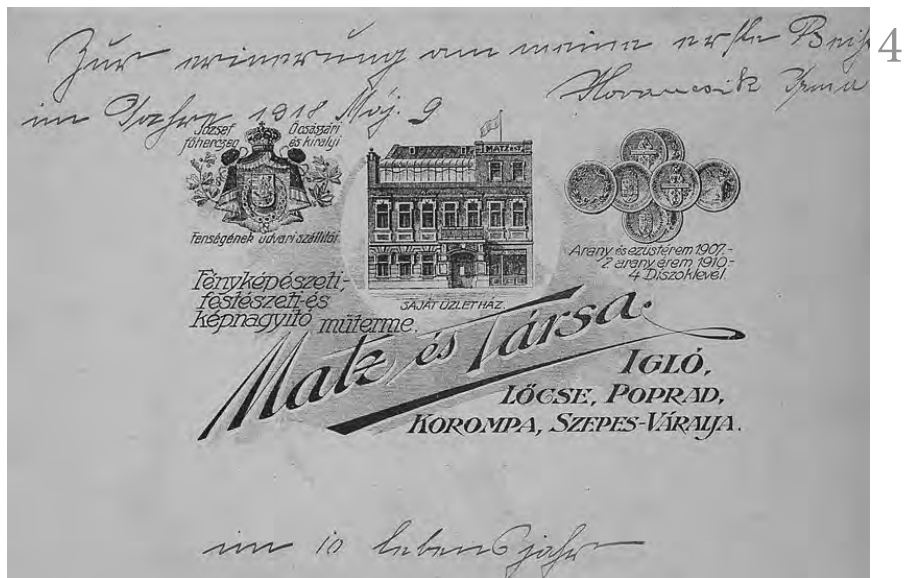 Zur erinerung an meine erste Beich
im Jahre 1918 Máj. 9
Irma
4
József főherceg
Ő császári és királyi
Fenségének udvari szállítói
MATZ és T.
SAJÁT ÜZLETHÁZ.
Arany és ezüstérem 1907.-
2 arany érem 1910-
4 Díszoklevél.
Fényképészeti-,
festészeti-és
képnagyító műterme.
Matz és Társa.
IGLÓ,
LŐCSE, POPRAD,
KOROMPA, SZEPES-VÁRALJA.
im 10 lebensjahr